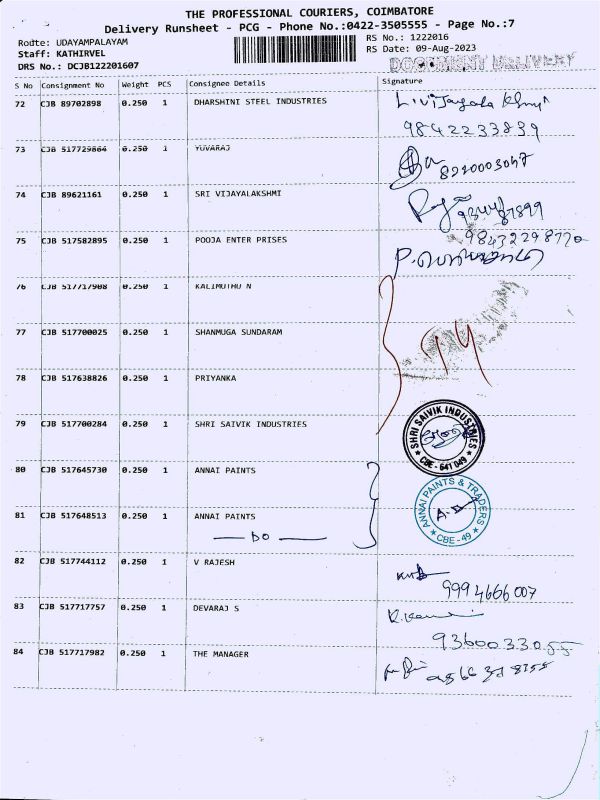 THE PROFESSIONAL COURIERS, COIMBATORE
Delivery Runsheet - PCG - Phone No.:0422-3505555 - Page No.:7
Route: UDAYAMPALAYAM
RS No.: 1222016
Staff: KATHIRVEL
RS Date: 09-Aug-2023
DRS No.: DCJB122201607
DOCUMENT DELIVERY
S No Consignment No Weight PCS Consignee Details Signature
72 CJB 89702898 0.250 1 DHARSHINI STEEL INDUSTRIES
9842233839
73 CJB 517729864 0.250 1 YUVARAJ
8220003047
74 CJB 89621161 0.250 1 SRI VIJAYALAKSHMI
75 CJB 517582895 0.250 1 POOJA ENTER PRISES
76 CJB 517717908 0.250 1 KALIMUTHU N
77 CJB 517700025 0.250 1 SHANMUGA SUNDARAM
78 CJB 517638826 0.250 1 PRIYANKA
79 CJB 517700284 0.250 1 SHRI SAIVIK INDUSTRIES
SHRI SAIVIK INDUSTRIES
CBE - 641 049
80 CJB 517645730 0.250 1 ANNAI PAINTS
ANNAI PAINTS & TRADERS
CBE - 49
81 CJB 517648513 0.250 1 ANNAI PAINTS
— DO —
82 CJB 517744112 0.250 1 V RAJESH
9994666007
83 CJB 517717757 0.250 1 DEVARAJ S
9360033055
84 CJB 517717982 0.250 1 THE MANAGER